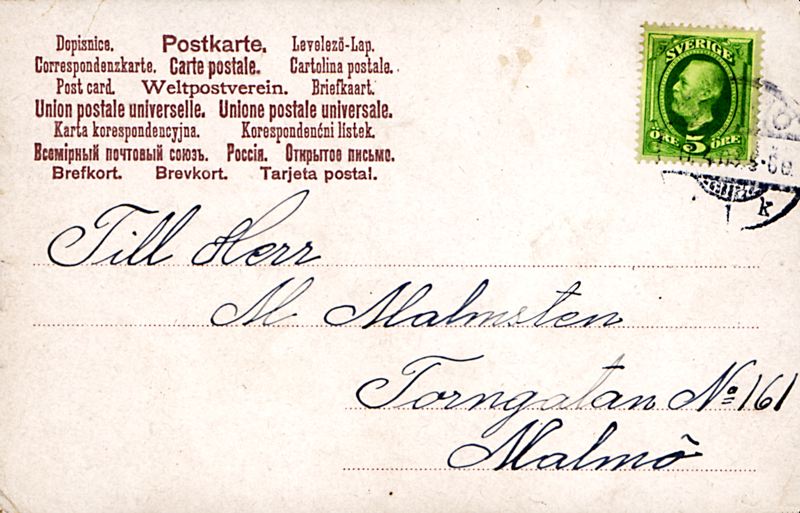 Dopisnice. Postkarte. Levelező-Lap.
Correspondenzkarte. Carte postale. Cartolina postale.
Post card. Weltpostverein. Briefkaart.
Union postale universelle. Unione postale universale.
Karta korespondencyjna. Korespondenćni listek.
Всемірный почтовый союзъ. Россія. Открытое письмо.
Brefkort. Brevkort. Tarjeta postal.
SVERIGE
ÖRE 5 ÖRE
1 K
Till Herr
M Malmsten
Torngatan No 161
Malmö